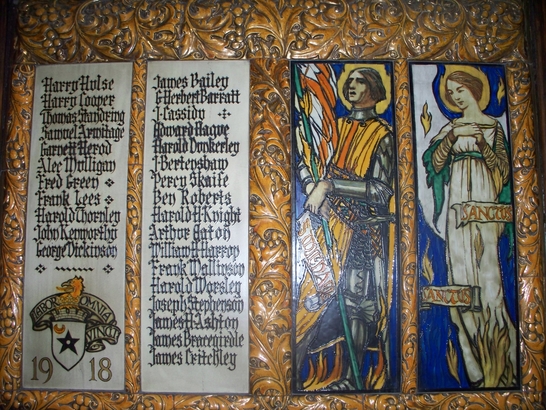 Harry Hulse
Harry Cooper
Thomas Standring
Samuel Armitage
Garnett Herod
Alec Mulligan
Fred Green
Frank Lees
Harold Thornley
John Kenworthy
George Dickinson
LABOR OMNIA VINCIT
1918
James Bailey
G Herbert Barratt
J. Cassidy
Edward Hague
Harold Dunkerley
J. Bertenshaw
Percy Skaife
Ben Roberts
Harold H Knight
Arthur Eaton
William H Harrop
Frank Mallinson
Harold Worsley
Joseph Stephenson
James H Ashton
James Bracegirdle
James Critchley
SANCTUS
SANCTUS